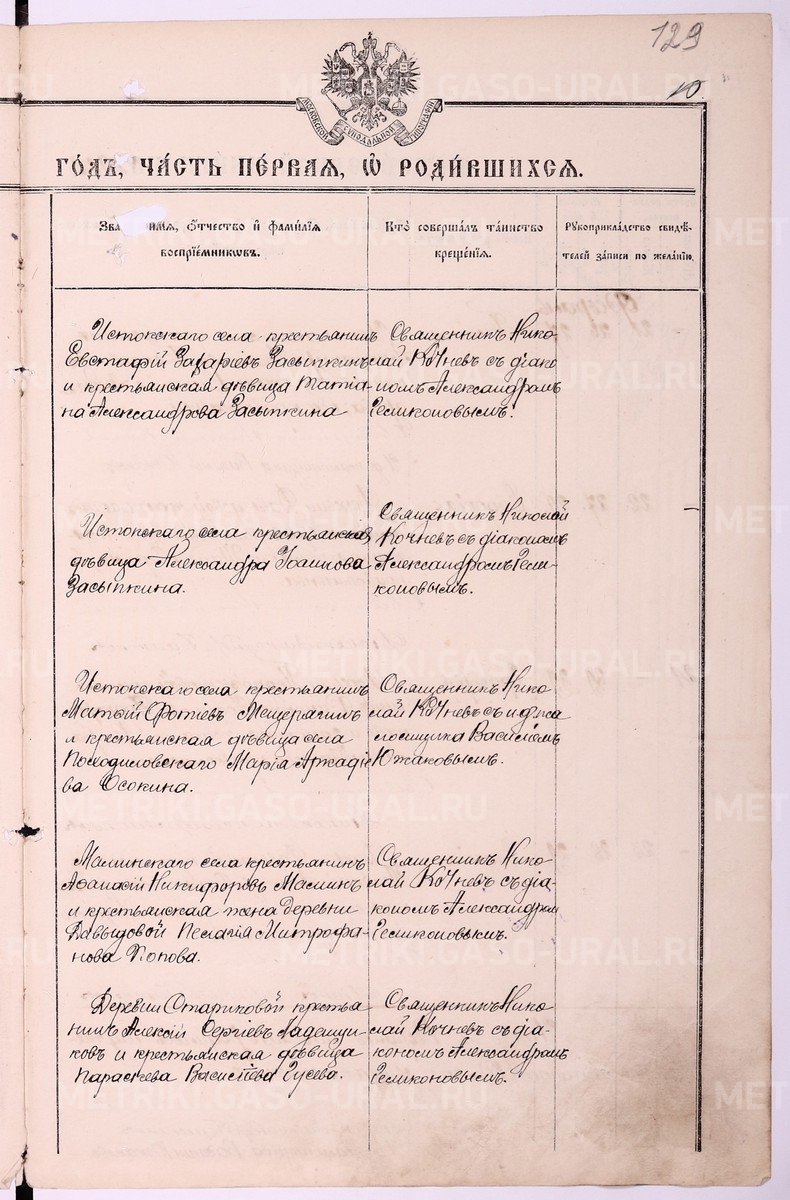 129
10
МОСКОВСКОЙ СѴНОДАЛЬНОЙ ТИПОГРАФІИ
ГО́ДЪ, ЧА́СТЬ ПЕ́РВАЯ, Ѡ҆ РОДИ́ВШИХСЯ.
Зва и҆́мя, Ѻ҆́тчество и҆ фами́лїя
воспрїе́мникѡвъ.
Кто̀ соверша́лъ та́инство
креще́нїя.
Рꙋкоприкла́дство свидѣ́-
телей за́писи по жела́нїю.
Истокскаго села крестьянинъ
Евстафій Захаріевъ Засыпкинъ
и крестьянская дѣвица Татіа-
на Александрова Засыпкина
Священникъ Нико-
лай Кочневъ съ діако-
номъ Александромъ
Геликоновымъ.
Истокскаго села крестьянская
дѣвица Александра Іоаннова
Засыпкина.
Священникъ Николай
Кочневъ съ діакономъ
Александромъ Гели-
коновымъ.
Истокскаго села крестьянинъ
Матѳій Фотіевъ Мещерагинъ
и крестьянская дѣвица села
Колодиловскаго Марія Аркадіе-
ва Осокина.
Священникъ Нико-
лай Кочневъ съ и д псa
ломщика Василіемъ
Южаковымъ.
Маминскаго села крестьянинъ
Аѳанасій Никифоровъ Маминъ
и крестьянская жена деревни
Давыдовой Пелагія Митрофа-
нова Попова.
Священникъ Нико-
лай Кочневъ съ діа-
кономъ Александром
Геликоновымъ.
Деревни Стариковой крестья-
нинъ Алексій Сергіевъ Ладейщи-
ковъ и крестьянская дѣвица
Параскева Василіева Гусева.
Священникъ Нико-
лай Кочневъ съ діа-
кономъ Александромъ
Геликоновымъ.
METRIKI.GASO-URAL.RU